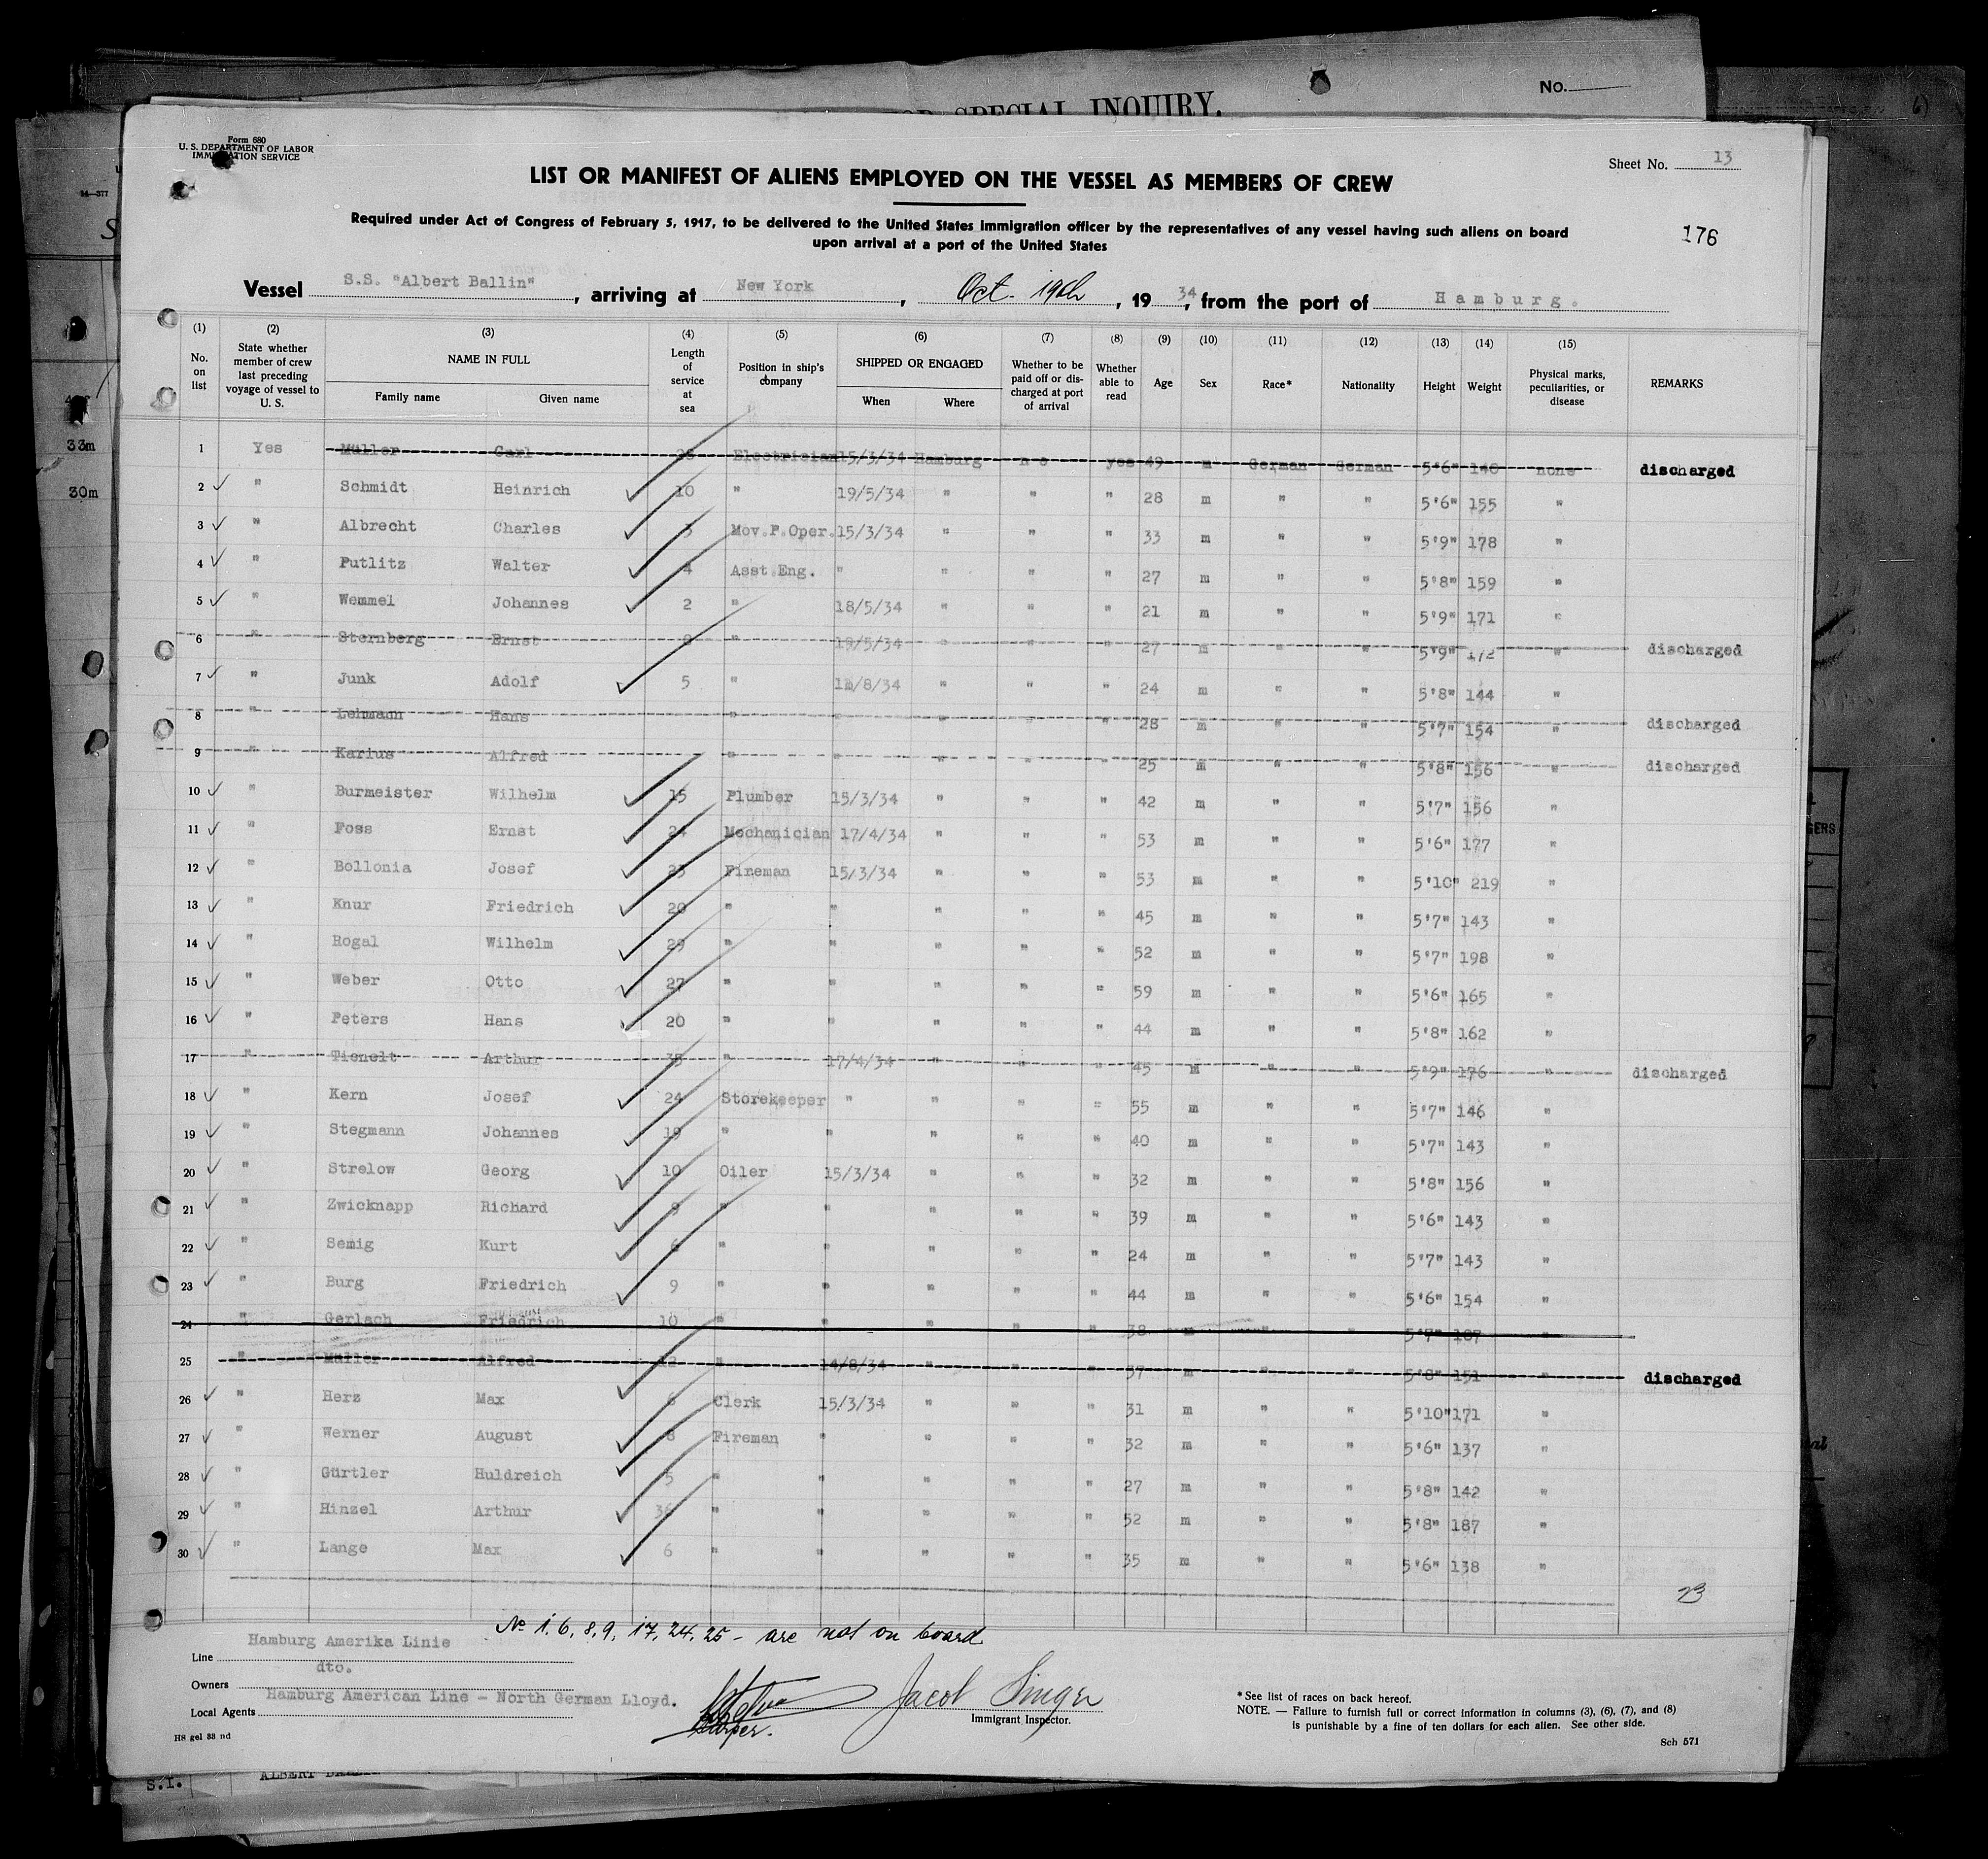 OR SPECIAL INQUIRY.
No.
Form 680
U. S. DEPARTMENT OF LABOR
IMMIGRATION SERVICE
Sheet No. 13
LIST OR MANIFEST OF ALIENS EMPLOYED ON THE VESSEL AS MEMBERS OF CREW
Required under Act of Congress of February 5, 1917, to be delivered to the United States immigration officer by the representatives of any vessel having such aliens on board
upon arrival at a port of the United States
176
Vessel S.S. "Albert Ballin", arriving at New York, Oct. 19th, 1934, from the port of Hamburg.
(1) (2) (3) (4) (5) (6) (7) (8) (9) (10) (11) (12) (13) (14) (15)
No. on list
State whether member of crew last preceding voyage of vessel to U. S.
NAME IN FULL
Family name Given name
Length of service at sea
Position in ship's company
SHIPPED OR ENGAGED
When Where
Whether to be paid off or discharged at port of arrival
Whether able to read
Age Sex Race* Nationality Height Weight
Physical marks, peculiarities, or disease
REMARKS
33m
30m
1 Yes Müller Carl Electrician 15/3/34 Hamburg no yes 49 m German German 5'6" 140 none discharged
2 " Schmidt Heinrich 10 " 19/5/34 " " " 28 m " " 5'6" 155 "
3 " Albrecht Charles 3 Mov.P.Oper. 15/3/34 " " " 33 m " " 5'9" 178 "
4 " Putlitz Walter 4 Asst.Eng. " " " " 27 m " " 5'8" 159 "
5 " Wemmel Johannes 2 " 18/5/34 " " " 21 m " " 5'9" 171 "
6 " Sternberg Ernst " 19/5/34 " " " 27 m " " 5'9" 172 " discharged
7 " Junk Adolf 5 " /8/34 " " " 24 m " " 5'8" 144 "
8 " Lehmann Hans " " " " " 28 m " " 5'7" 154 " discharged
9 " Karius Alfred " " " " " 25 m " " 5'8" 156 " discharged
10 " Burmeister Wilhelm 15 Plumber 15/3/34 " " " 42 m " " 5'7" 156 "
11 " Foss Ernst 24 Mechanician 17/4/34 " " " 53 m " " 5'6" 177 "
12 " Bollonia Josef 23 Fireman 15/3/34 " " " 53 m " " 5'10" 219 "
13 " Knur Friedrich 20 " " " " " 45 m " " 5'7" 143 "
14 " Rogal Wilhelm 29 " " " " " 52 m " " 5'7" 198 "
15 " Weber Otto 27 " " " " " 59 m " " 5'6" 165 "
16 " Peters Hans 20 " " " " " 44 m " " 5'8" 162 "
17 " Tienelt Arthur 35 " 17/4/34 " " " 45 m " " 5'9" 176 " discharged
18 " Kern Josef 24 Storekeeper " " " " 55 m " " 5'7" 146 "
19 " Stegmann Johannes 19 " " " " " 40 m " " 5'7" 143 "
20 " Strelow Georg 10 Oiler 15/3/34 " " " 32 m " " 5'8" 156 "
21 " Zwicknapp Richard 9 " " " " " 39 m " " 5'6" 143 "
22 " Semig Kurt 6 " " " " " 24 m " " 5'7" 143 "
23 " Burg Friedrich 9 " " " " " 44 m " " 5'6" 154 "
24 " Gerlach Friedrich 10 " " " " " 38 m " " 5'7" 187 "
25 " Müller Alfred 12 " 14/8/34 " " " 37 m " " 5'8" 151 " discharged
26 " Herz Max 6 Clerk 15/3/34 " " " 31 m " " 5'10" 171 "
27 " Werner August 8 Fireman " " " " 32 m " " 5'6" 137 "
28 " Gürtler Huldreich 5 " " " " " 27 m " " 5'8" 142 "
29 " Hinzel Arthur 36 " " " " " 52 m " " 5'8" 187 "
30 " Lange Max 6 " " " " " 35 m " " 5'6" 138 "
23
No 1, 6, 8, 9, 17, 24, 25 - are not on board
Line Hamburg Amerika Linie
Owners dto.
Local Agents Hamburg American Line - North German Lloyd.
Purser.
Jacob Singer
Immigrant Inspector.
* See list of races on back hereof.
NOTE. — Failure to furnish full or correct information in columns (3), (6), (7), and (8)
is punishable by a fine of ten dollars for each alien. See other side.
H8 gel 88 nd
Sch 571
S.I.